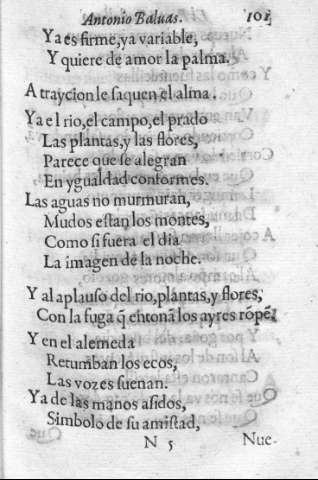 Antonio Baluas. 101
Ya es firme, ya variable,
Y quiere de amor la palma.
A traycion le saquen el alma.
Ya el rio, el campo, el prado
Las plantas, y las flores,
Parece que se alegran
En ygualdad conformes.
Las aguas no murmuran,
Mudos estan los montes,
Como si fuera el dia
La imagen de la noche.
Y al aplauso del rio, plantas, y flores,
Con la fuga q̃ entonã los ayres rõpẽ.
Y en el alemeda
Retumban los ecos,
Las vozes suenan.
Ya de las manos asidos,
Simbolo de su amistad,
N 5 Nue-